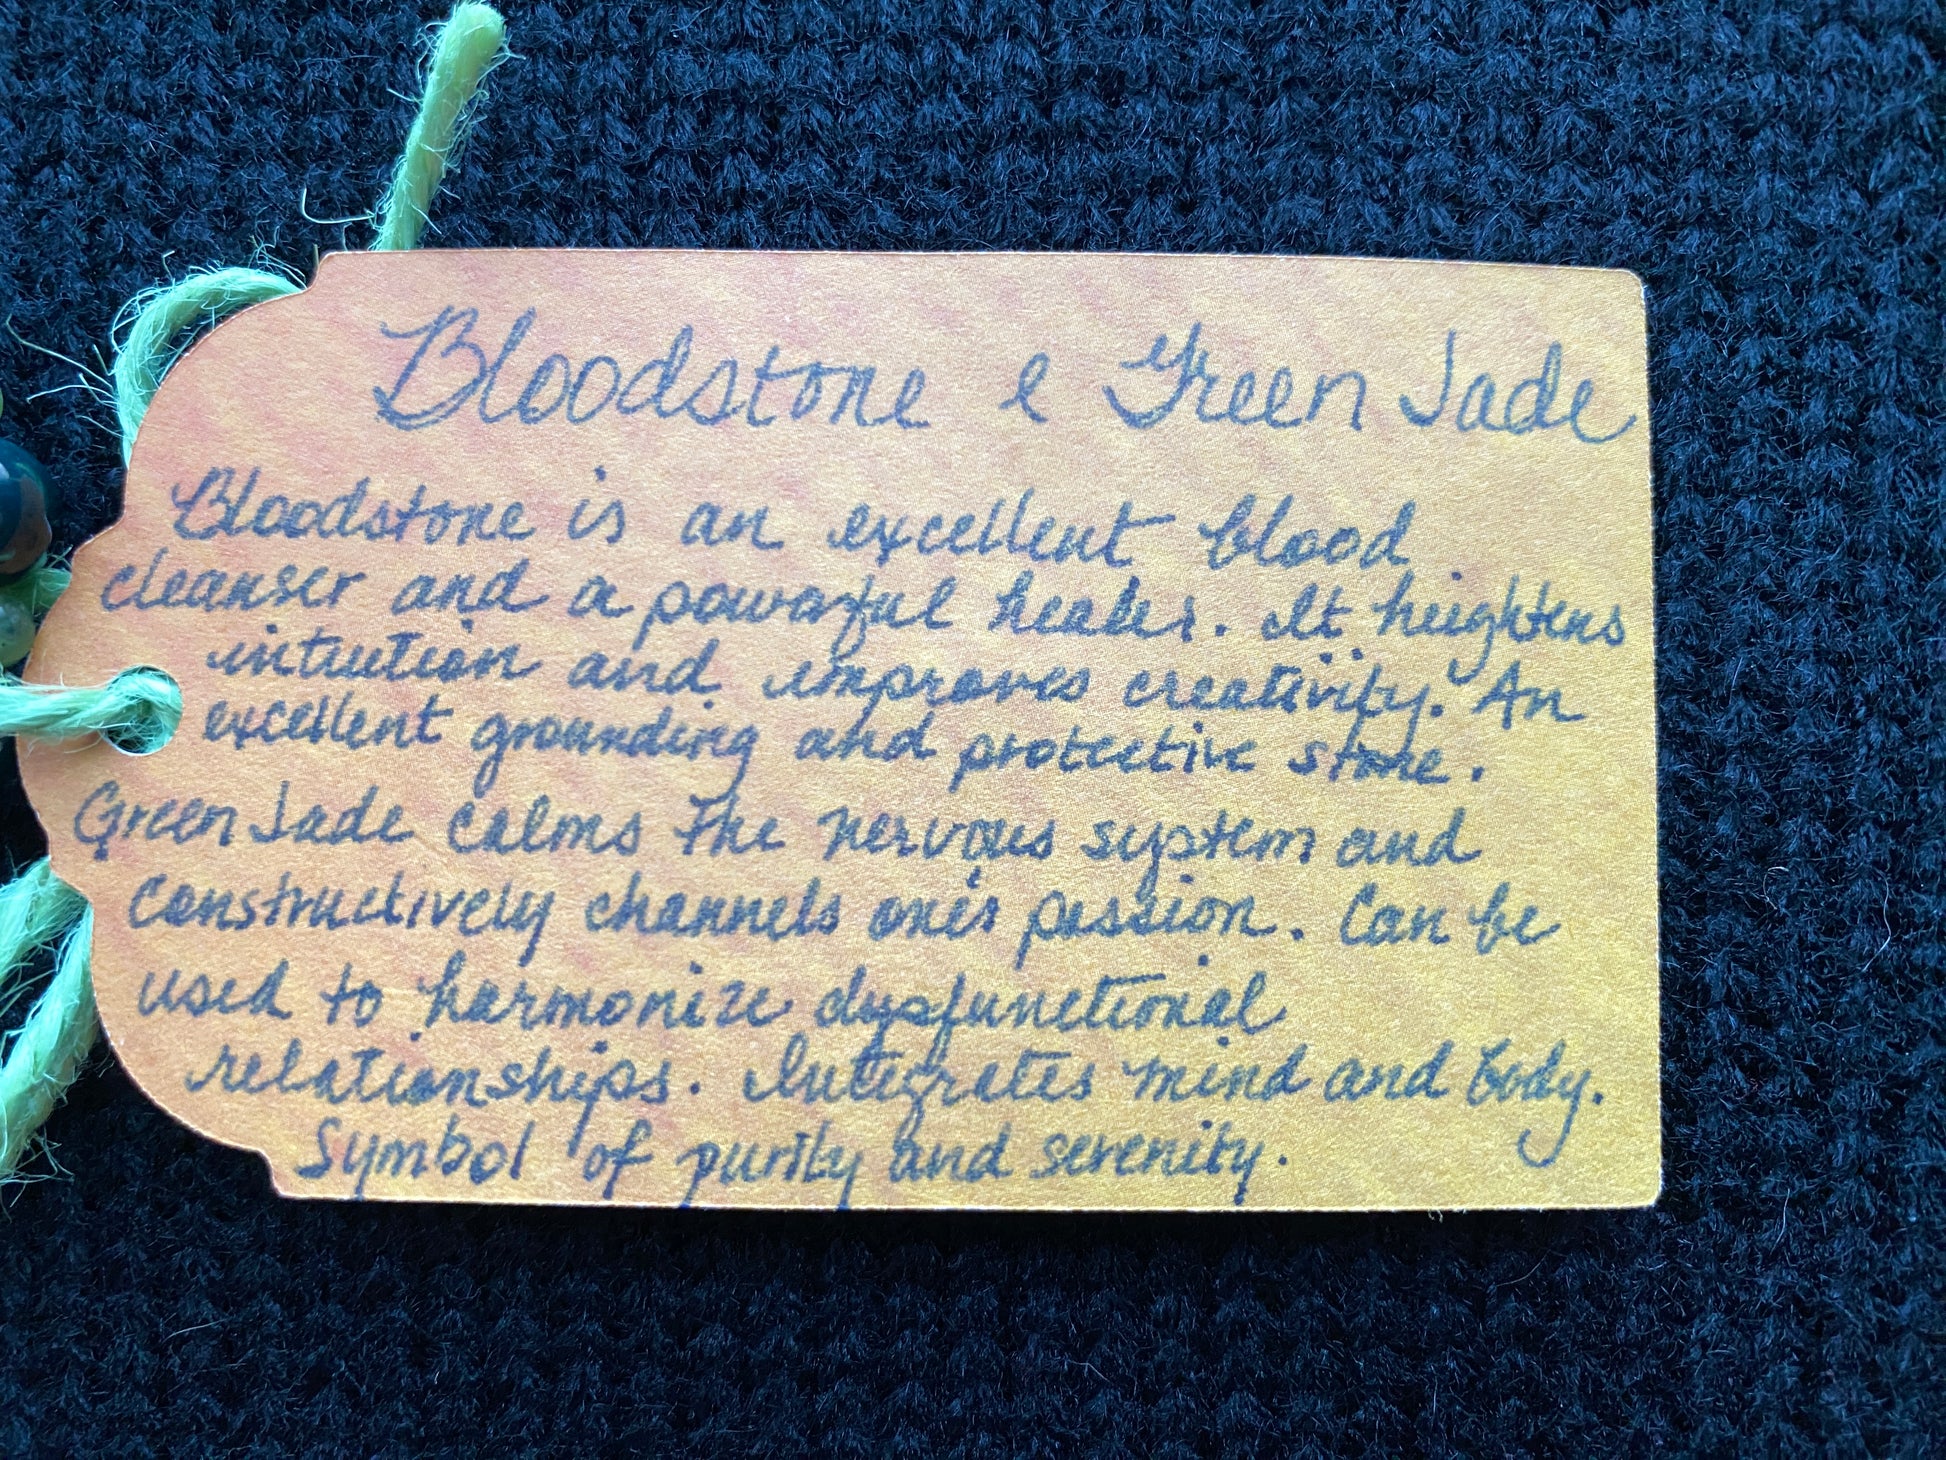 Bloodstone & Green Jade
Bloodstone is an excellent blood
cleanser and a powerful healer. It heightens
intuition and improves creativity. An
excellent grounding and protective stone.
Green Jade calms the nervous system and
constructively channels one's passion. Can be
used to harmonize dysfunctional
relationships. Integrates mind and body.
Symbol of purity and serenity.